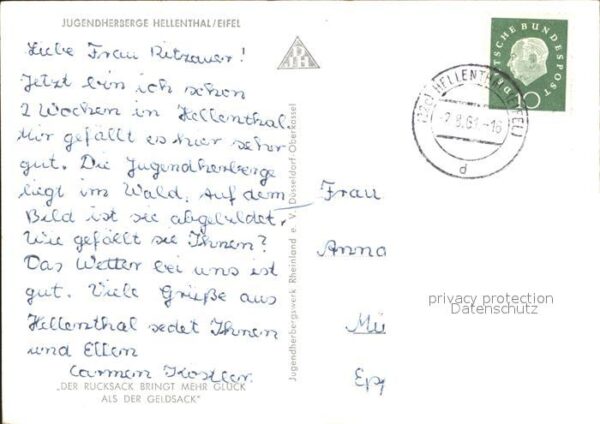 JUGENDHERBERGE HELLENTHAL/EIFEL
Liebe Frau Ritzauer!
Jetzt bin ich schon
2 Wochen in Hellenthal
Mir gefällt es hier sehr
gut. Die Jugendherberge
liegt im Wald. Auf dem
Bild ist sie abgebildet.
Wie gefällt sie Ihnen?
Das Wetter bei uns ist
gut. Viele Grüße aus
Hellenthal sedet Ihnen
und Ellen
Carmen Kostler.
„DER RUCKSACK BRINGT MEHR GLÜCK
ALS DER GELDSACK"
Jugendherbergswerk Rheinland e. V. Düsseldorf-Oberkassel
DEUTSCHE BUNDESPOST
HELLENTHAL (EIFEL)
d
Frau
Anna
Mü
Epp
privacy protection
Datenschutz